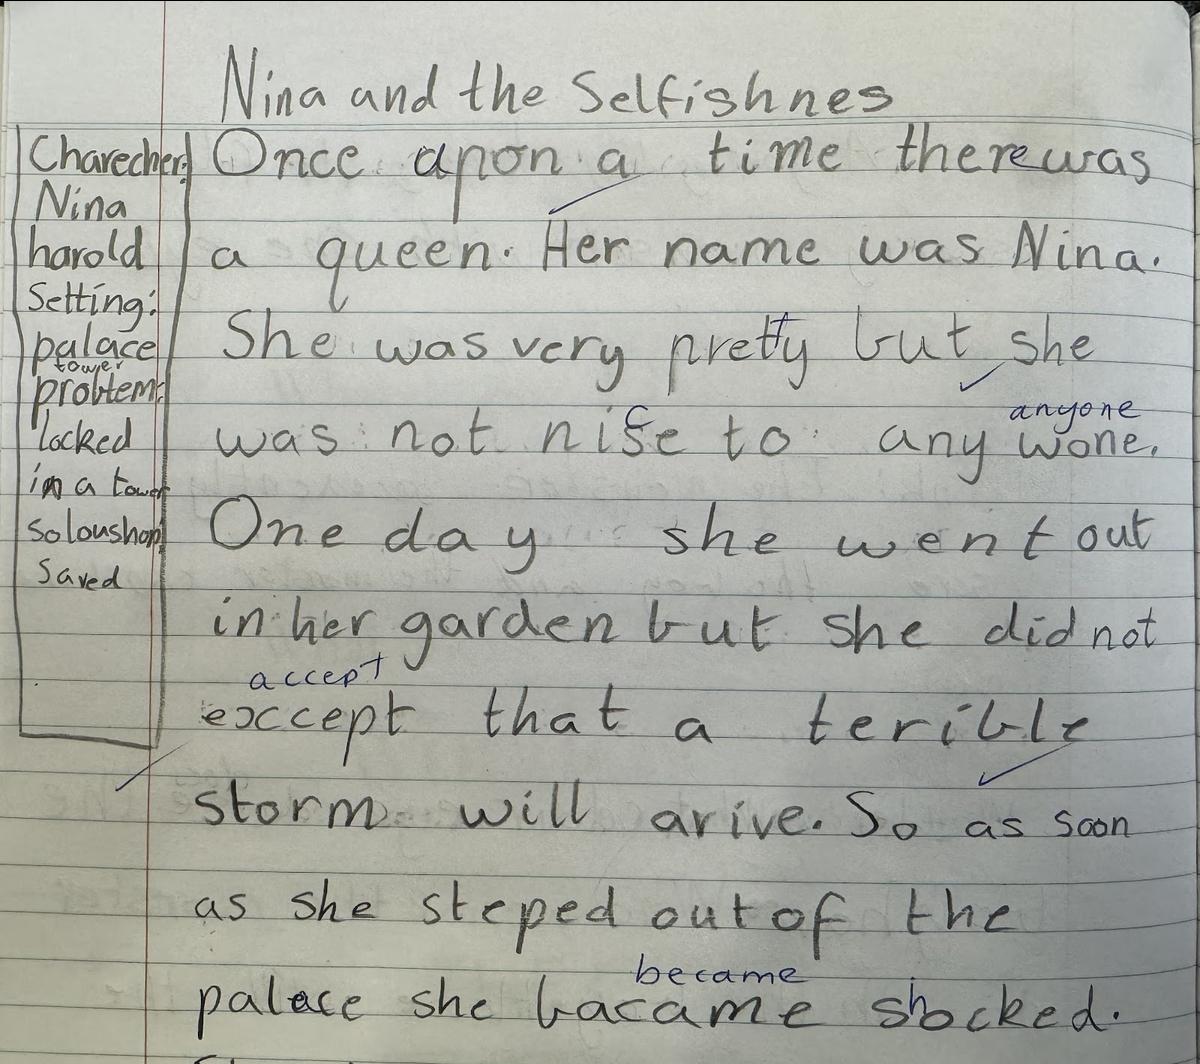 Nina and the Selfishnes
Charecher:
Nina
harold
Setting:
palace
tower
problem:
locked
in a tower
soloushon
saved
Once apon a time there was
a queen. Her name was Nina.
She was very pretty but she
anyone
was not nice to any wone.
One day she went out
in her garden but she did not
accept
exccept that a terible
storm will arive. So as soon
as she steped out of the
became
palace she bacame shocked.